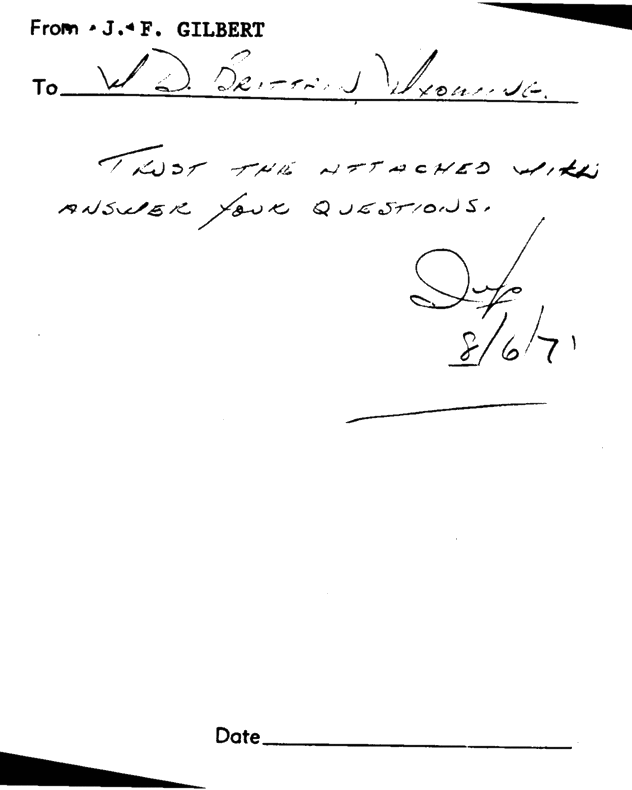 From J. F. GILBERT
To W D. BRITTAIN, WYOMING.
TRUST THE ATTACHED WILL
ANSWER YOUR QUESTIONS.
8/6/71
Date